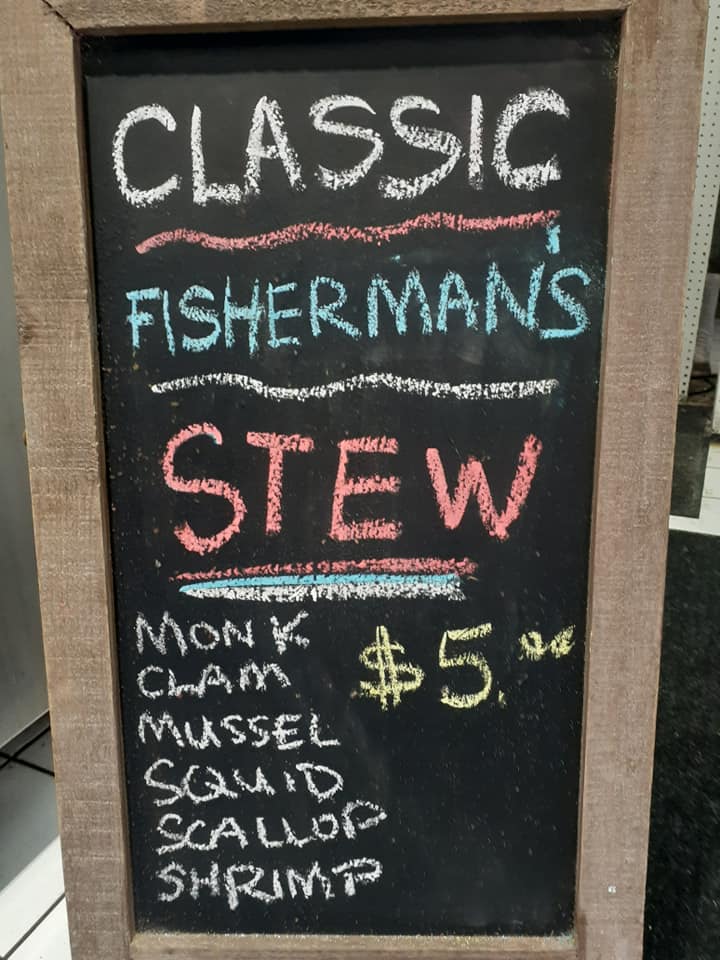 CLASSIC
FISHERMAN'S
STEW
MONK
CLAM
$5.00
MUSSEL
SQUID
SCALLOP
SHRIMP